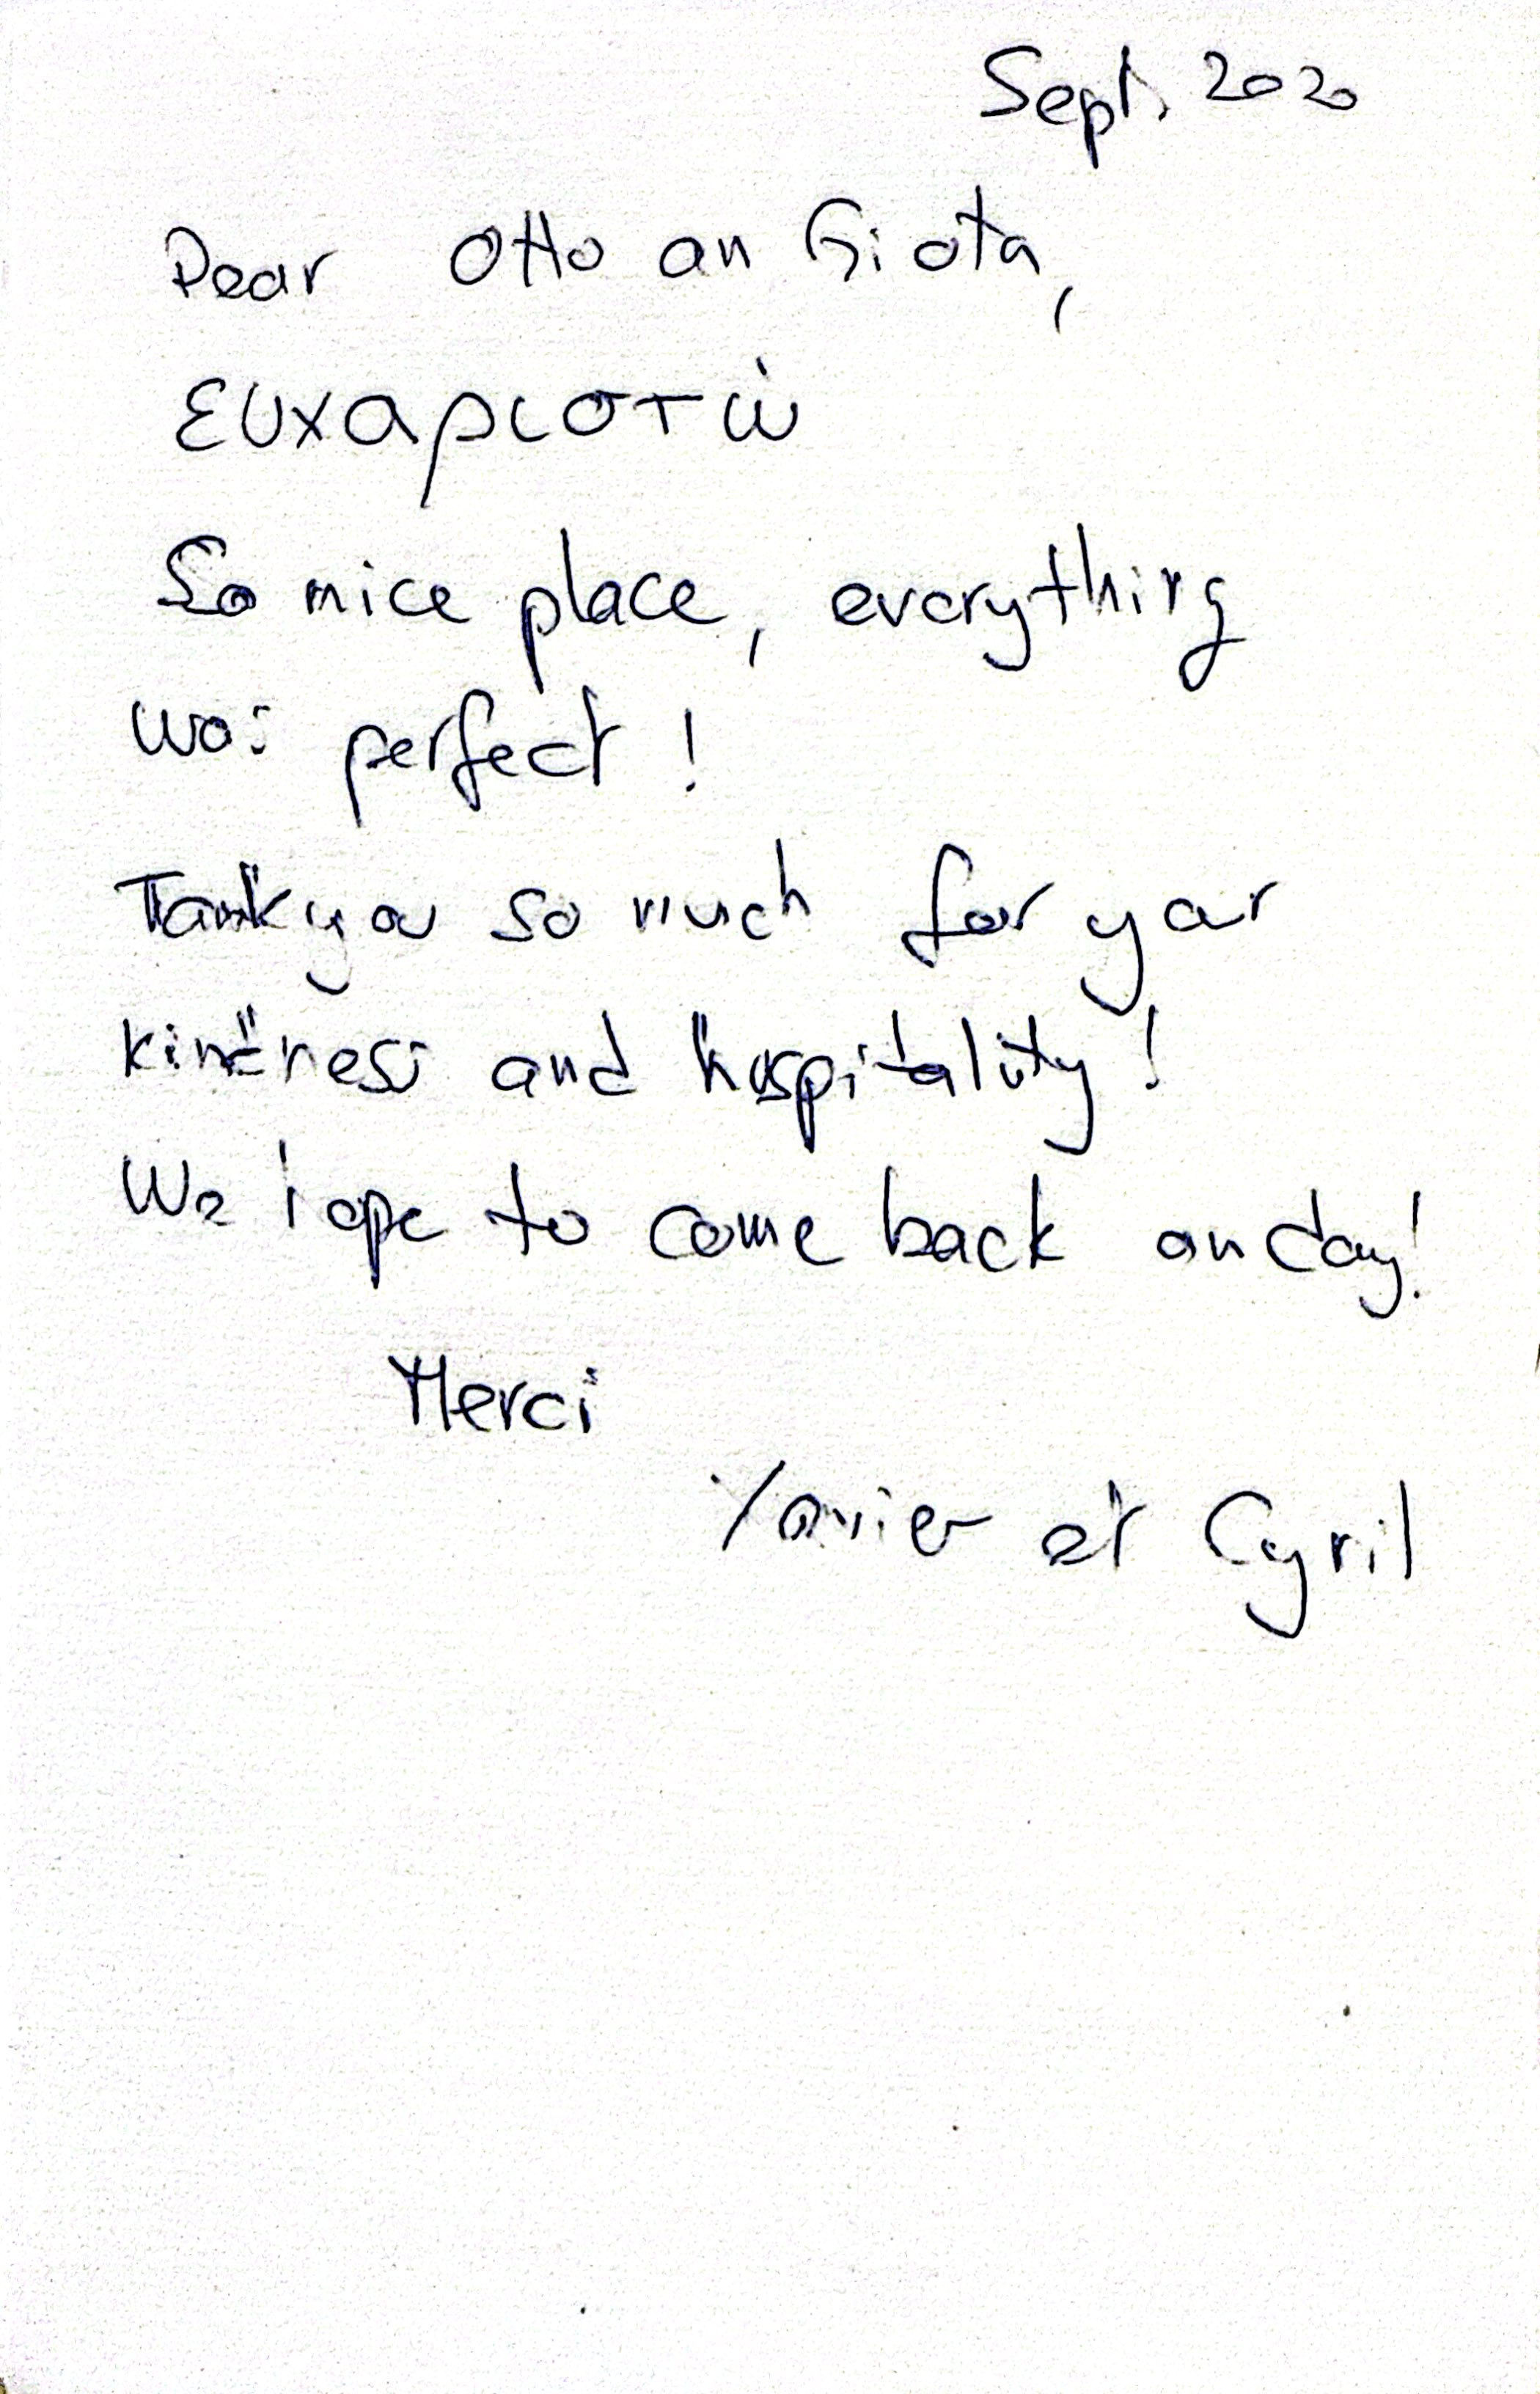 Sept. 2020
Dear Otto an Giota,
ευχαριστώ
So nice place, everything
was perfect !
Tank you so much for your
kindness and hospitality !
We hope to come back on day!
Merci
Xavier et Cyril